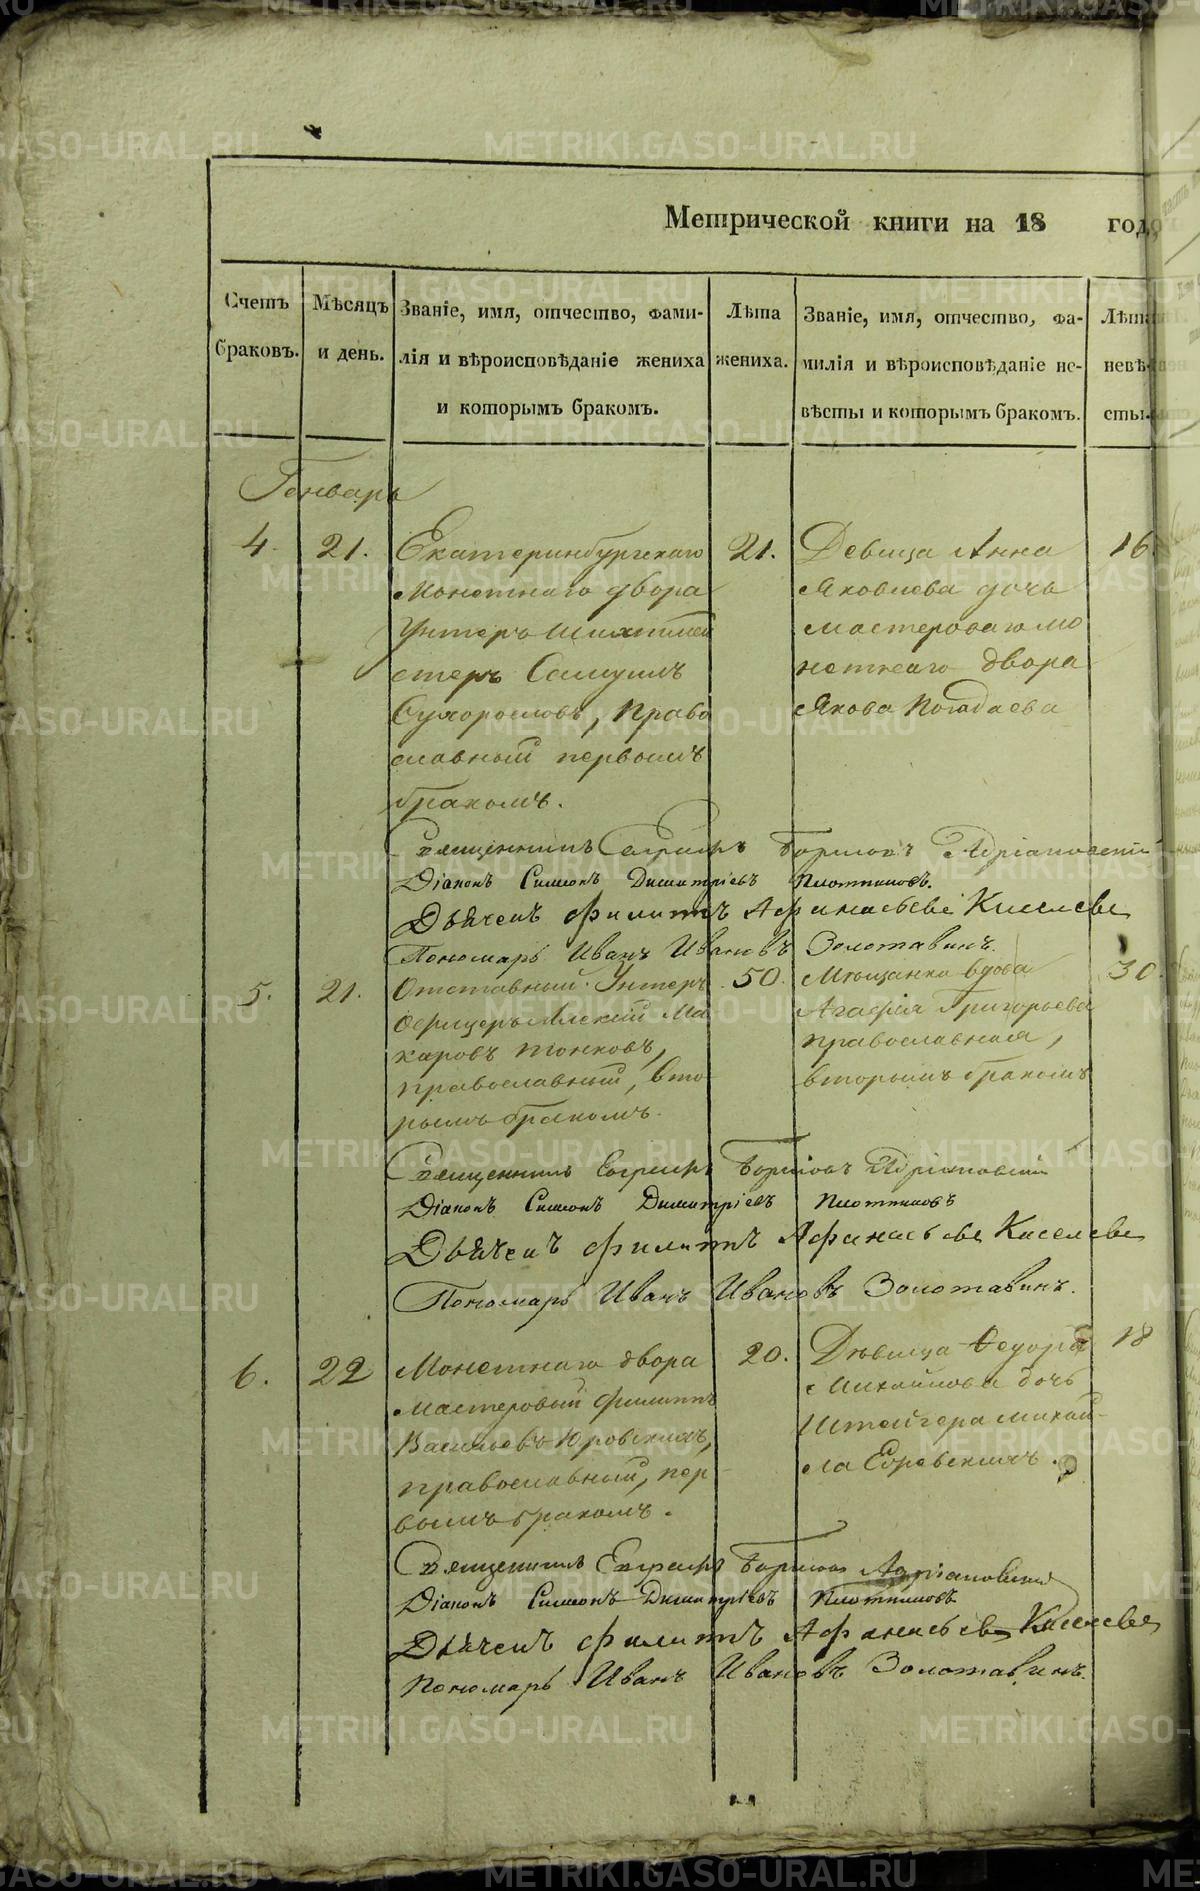 Метрической книги на 18 годъ
Счетъ браковъ.
Мѣсяцъ и день.
Званіе, имя, отчество, фами-
лія и вѣроисповѣданіе жениха
и которымъ бракомъ.
Лѣта жениха.
Званіе, имя, отчество, фа-
милія и вѣроисповѣданіе не-
вѣсты и которымъ бракомъ.
Лѣта невѣ-
сты.
Генварь
4. 21.
Екатеринбургскаго
Монетнаго двора
Унтеръ Шихтмей
стеръ Самуилъ
Сухорословъ, Право
славный первымъ
бракомъ.
21.
Девица Анна
Яковлева дочь
Мастероваго мо
нетнаго двора
Якова
16
Священникъ Борисовъ Адріановскій
Діаконъ Симеонъ Димитріевъ Плотниковъ.
Дьячекъ Филиппъ Афанасьевъ Киселевъ
Пономарь Иванъ Ивановъ Золотавинъ.
5. 21.
Отставный Унтеръ
Офицеръ Алексій Ма
каровъ Тонковъ,
православный, вто
рымъ бракомъ.
50
Мещанка вдова
Агафія Григорьева
православная,
вторымъ бракомъ
30.
Священникъ Борисовъ Адріановскій
Діаконъ Симеонъ Димитріевъ Плотниковъ
Дьячекъ Филиппъ Афанасьевъ Киселевъ
Пономарь Иванъ Ивановъ Золотавинъ.
6. 22
Монетнаго двора
Мастеровый Филиппъ
Васильевъ Юровскихъ,
православный, пер
вымъ бракомъ.
20.
Дѣвица Ѳедора
Михайлова дочь
Штейгера Михай-
ла
18
Священникъ Борисовъ Адріановскій
Діаконъ Симеонъ Димитріевъ Плотниковъ
Дьячекъ Филиппъ Афанасьевъ Киселевъ
Пономарь Иванъ Ивановъ Золотавинъ.
METRIKI.GASO-URAL.RU